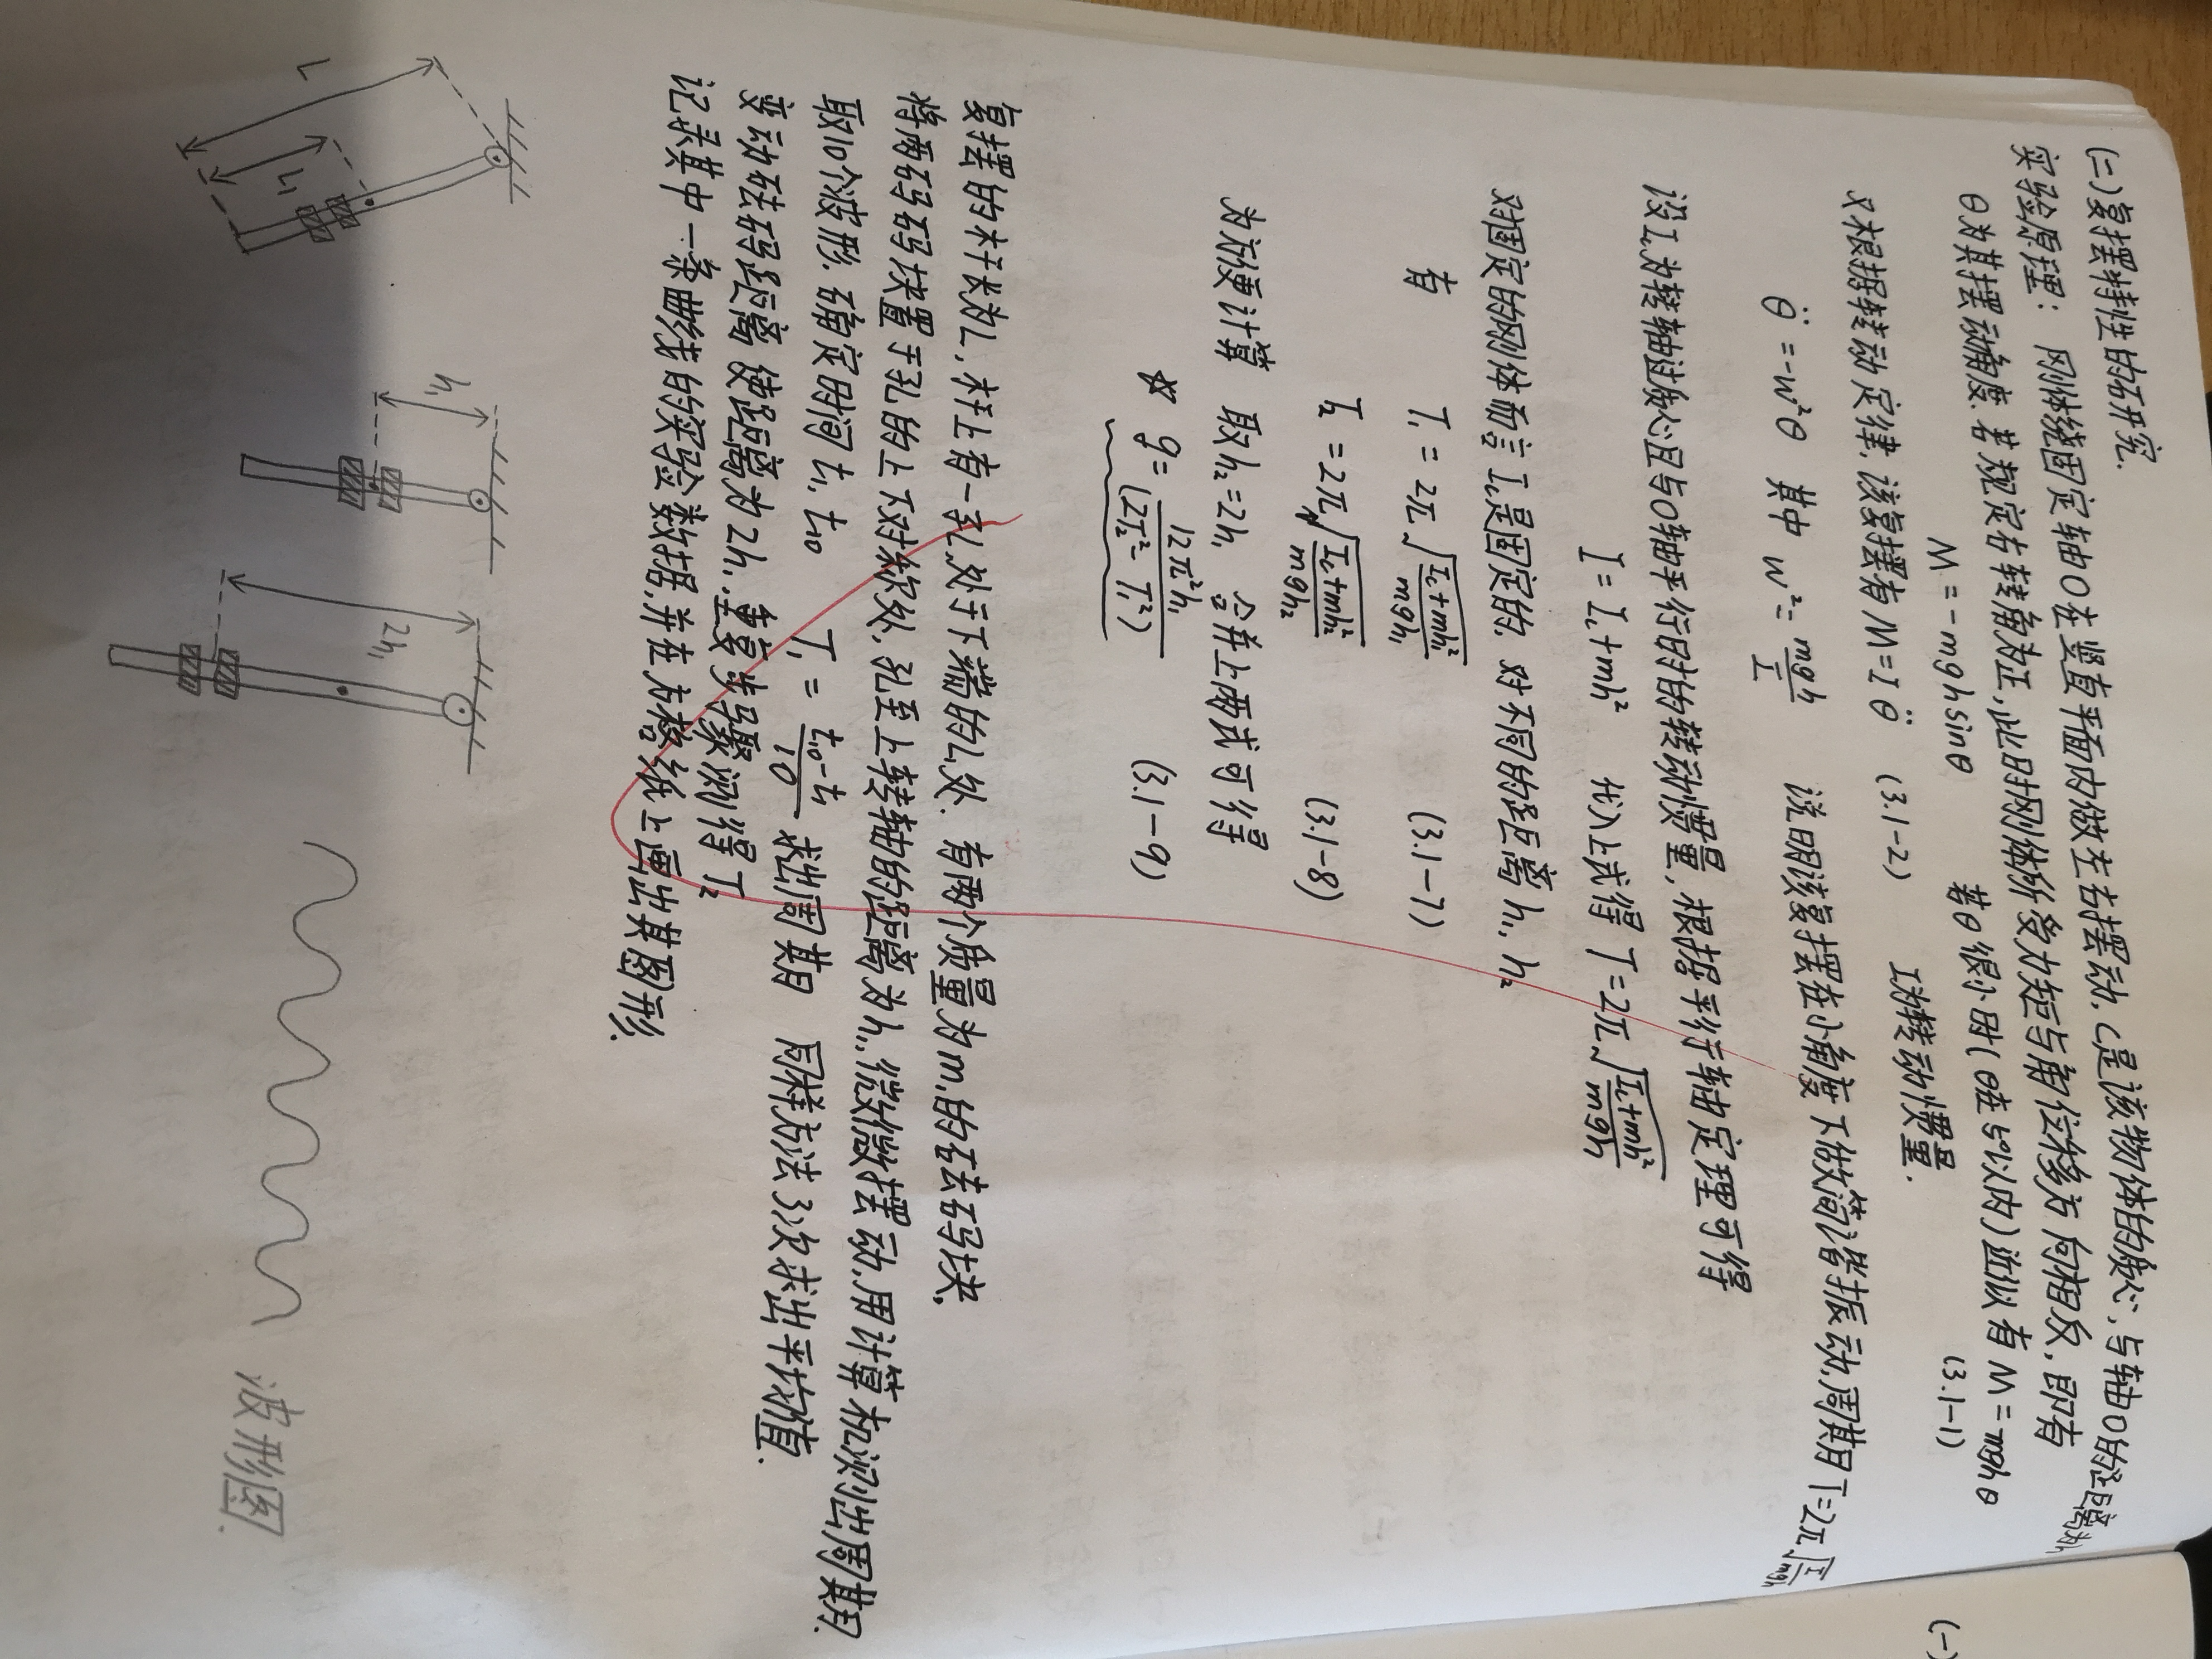 (二)复摆特性的研究.
实验原理: 刚体绕固定轴O在竖直平面内做左右摆动, C是该物体的质心, 与轴O的距离为h
θ为其摆动角度. 若规定右转角为正, 此时刚体所受力矩与角位移方向相反, 即有
M = -mghsinθ 若θ很小时(θ在5°以内)近似有 M = -mghθ (3.1-1)
又根据转动定律, 该复摆有 M = I θ̈ (3.1-2) I为转动惯量.
θ̈ = -w²θ 其中 w² = mgh/I 说明该复摆在小角度下做简谐振动, 周期T=2π√(I/mgh)
设Ic为转轴过质心且与O轴平行时的转动惯量, 根据平行轴定理可得
I = Ic + mh² 代入上式得 T = 2π√((Ic+mh²)/mgh)
对固定的刚体而言Ic是固定的, 对不同的距离h₁, h₂
有 T₁ = 2π√((Ic+mh₁²)/mgh₁) (3.1-7)
T₂ = 2π√((Ic+mh₂²)/mgh₂) (3.1-8)
为方便计算 取h₂=2h₁ 合并上两式可得
☆ g = 12π²h₁/(2T₂²-T₁²) (3.1-9)
复摆的杆长为L, 杆上有一孔, 处于下端的L₁处. 有两个质量为m₁的砝码块.
将两码码块置于孔的上下对称处, 孔至上转轴的距离为h₁, 微微摆动, 用计算机测出周期.
取10个波形. 确定时间 t₁, t₁₀ T₁ = (t₁₀-t₁)/10 求出周期 同样方法3次求出平均值.
变动砝码距离 使距离为2h₁, 重复步骤测得T₂
记录其中一条曲线的实验数据, 并在方格纸上画出其图形.
L
L₁
h₁
2h₁
波形图.
(一)